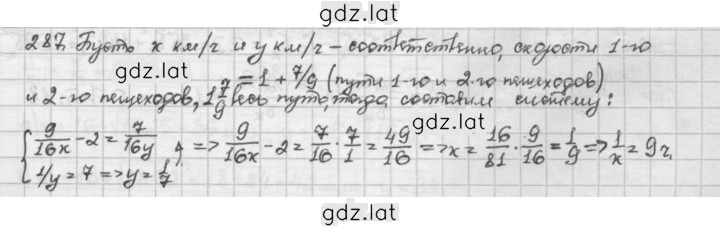 gdz.lat
287. Пусть x км/г и y км/г – соответственно, скорости 1-го
gdz.lat
= 1 + 7/9 (пути 1-го и 2-го пешеходов)
и 2-го пешеходов, 1 7/9 весь путь, тогда составим систему:
gdz.lat
{ 9/16x - 2 = 7/16y => 9/16x - 2 = 7/16 · 7/1 = 49/16 => x = 16/81 · 9/16 = 1/9 => 1/x = 9 ч.
1/y = 7 => y = 1/7
gdz.lat